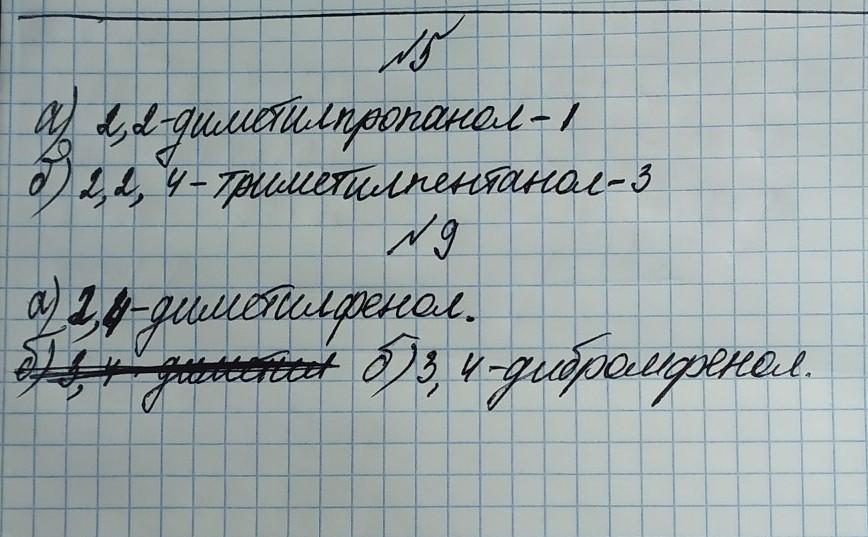 №5
а) 2,2-диметилпропанол-1
б) 2,2, 4-триметилпентанол-3
№9
а) 2,4-диметилфенол.
б) 3, 4-диметил б) 3, 4-дибромфенол.